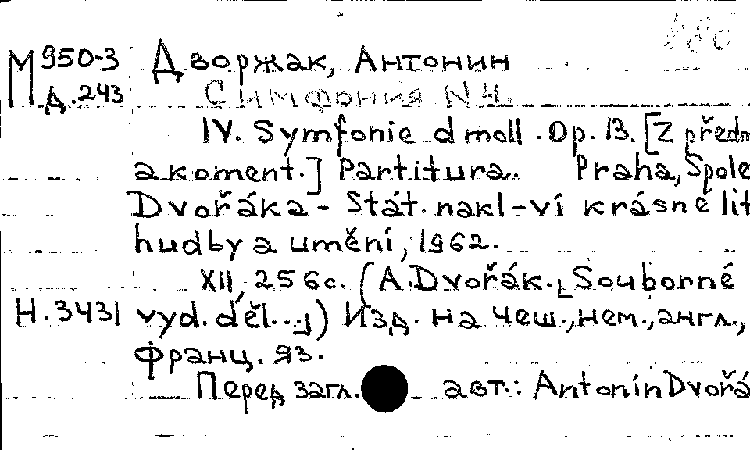 М 950-3 Дворжак, Антонин
Д.243 Симфония N 4.
IV. Symfonie d moll. Op. 13. [Z předm
a koment.] Partitura. Praha, Spole
Dvořáka - Stát. nakl-ví krásné lit
hudby a umění, 1962.
XII, 256 с. (A. Dvořák. Souborné
Н.3431 vyd. děl...) Изд. на чеш., нем., англ.,
франц. яз.
Перед загл. авт.: Antonín Dvořá